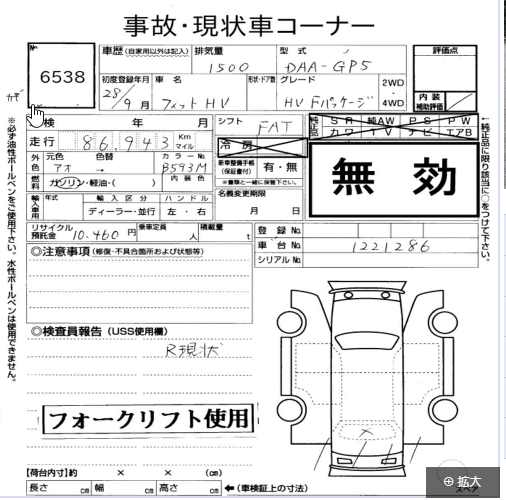 事故・現状車コーナー
No.
6538
カギ
車歴 (自家用以外は記入)
排気量
1500
型式
DAA-GP5
評価点
初度登録年月
28/9月
車名
フィットHV
形状・ドア数
グレード
HV Fパッケージ
2WD
・
4WD
内装
補助評価
検 年 月
シフト
FAT
冷房
純正品
SR 純AW PS PW
カワ TV ナビ エアB
走行 86,943 Km
マイル
外色
元色
アオ
色替
→
カラーNo.
B593M
新車整備手帳
(保証書付)
有・無
※書類と一緒に保管下さい。
無効
燃料
ガソリン・軽油・( )
内装色
名義変更期限
月 日
輸入車用
年式
輸入区分
ディーラー・並行
ハンドル
左・右
リサイクル
預託金
10,460円
乗車定員
人
積載量
t
登録No.
車台No.
1221286
シリアルNo.
◎注意事項 (修復・不具合箇所および状態等)
◎検査員報告 (USS使用欄)
R現状
フォークリフト使用
【荷台内寸】約 × × (cm)
長さ cm 幅 cm 高さ cm
←(車検証上の寸法)
スペア
拡大
※必ず油性ボールペンをご使用下さい。水性ボールペンは使用できません。
←純正品に限り該当に○をつけて下さい。